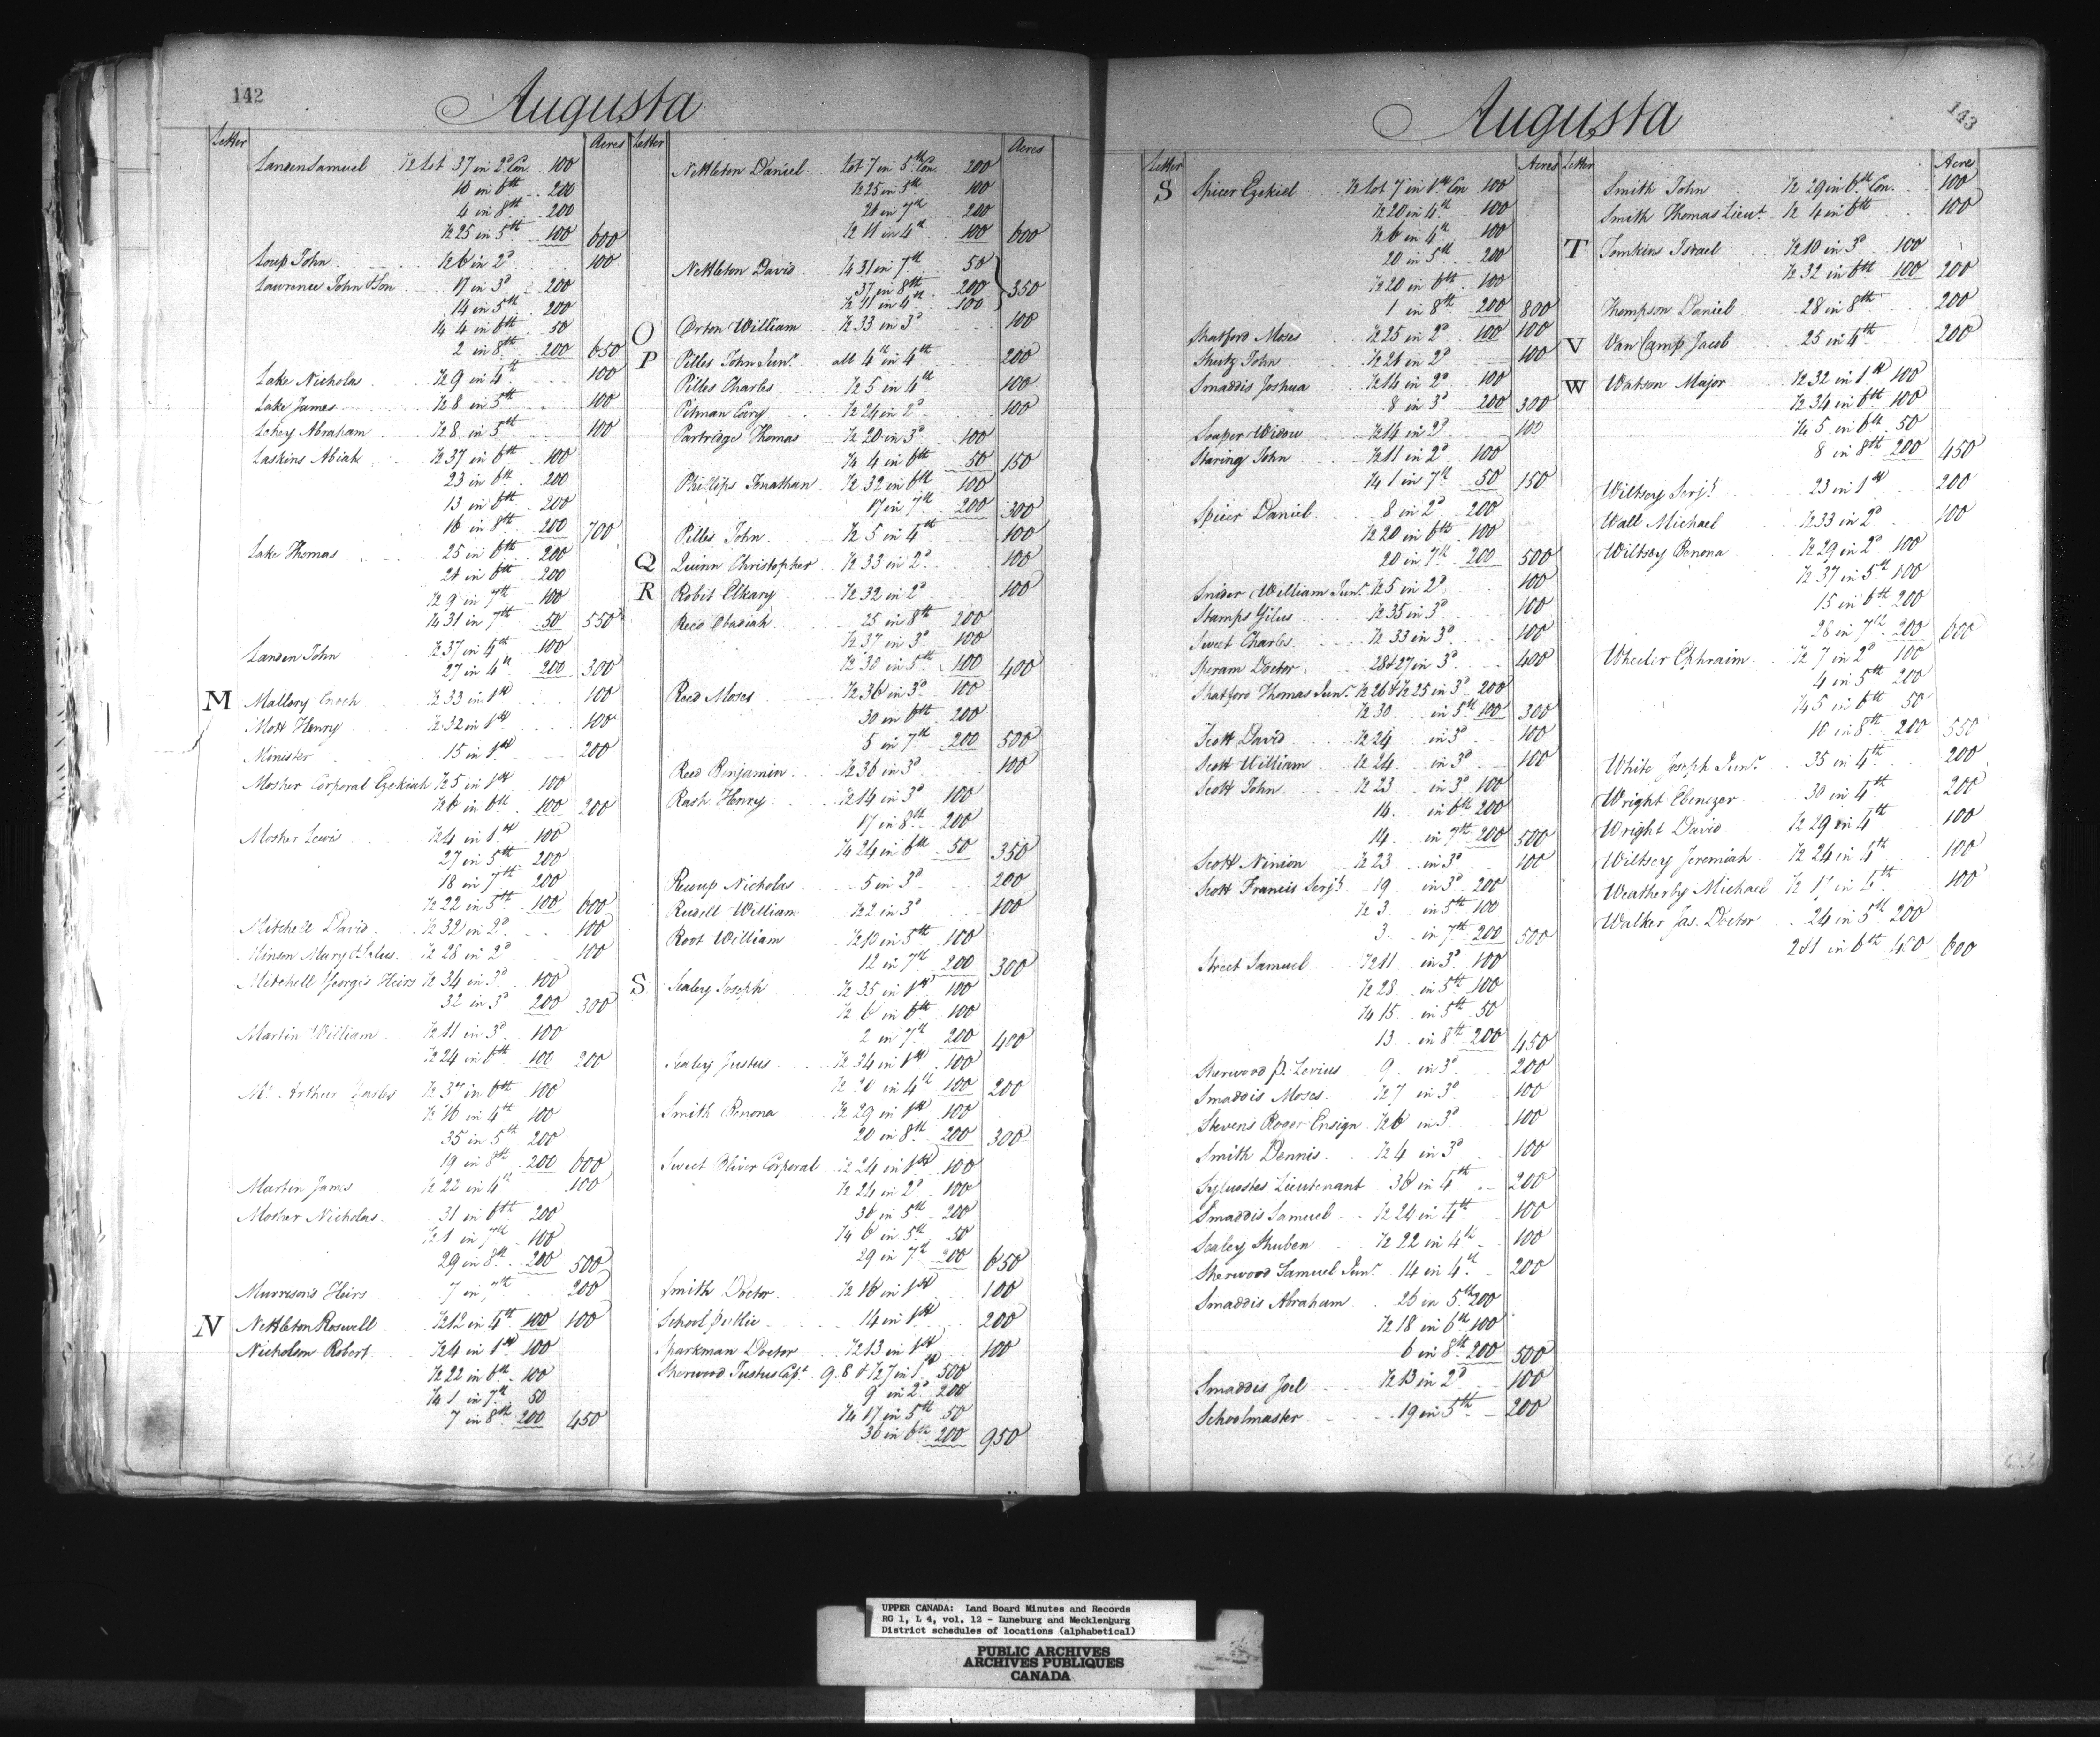 142
Augusta
Letter Acres
Landon Samuel ½ Lot 37 in 2d Con. 100
10 in 6th 200
4 in 8th 200
½ 25 in 5th 100 600
Loup John ½ 6 in 2d 100
Lawrence John & Son 17 in 3d 200
14 in 5th 200
¼ 4 in 6th 50
2 in 8th 200 650
Lake Nicholas ½ 9 in 4th 100
Lake James ½ 8 in 5th 100
Lohey Abraham ½ 8 in 5th 100
Laskins Abiah ½ 37 in 6th 100
23 in 6th 200
13 in 6th 200
16 in 8th 200 700
Lake Thomas 25 in 6th 200
21 in 6th 200
½ 9 in 7th 100
¼ 31 in 7th 50 550
Landon John ½ 37 in 4th 100
27 in 4th 200 300
M Mallory Enoch ½ 33 in 1st 100
Mott Henry ½ 32 in 1st 100
Minister 15 in 1st 200
Mosher Corporal Ezekiah ½ 5 in 1st 100
½ 6 in 6th 100 200
Mosher Lewis ½ 4 in 1st 100
27 in 5th 200
18 in 7th 200
½ 22 in 5th 100 600
Mitchell David ½ 32 in 2d 100
Minson Mary ½ 28 in 2d 100
Mitchell George's Heirs ½ 34 in 3d 100
32 in 3d 200 300
Martin William ½ 11 in 3d 100
½ 24 in 6th 100 200
Mc Arthur Charles ½ 37 in 6th 100
½ 16 in 4th 100
35 in 5th 200
19 in 8th 200 600
Martin James ½ 22 in 4th 100
Mosher Nicholas 31 in 6th 200
½ 1 in 7th 100
29 in 8th 200 500
Murrison's Heirs 7 in 7th 200
N Nettleton Roswell ½ 12 in 4th 100 100
Nicholson Robert ½ 4 in 1st 100
½ 22 in 6th 100
¼ 1 in 7th 50
7 in 8th 200 450
Letter Acres
Nettleton Daniel Lot 7 in 5th Con. 200
½ 25 in 5th 100
21 in 7th 200
½ 11 in 4th 100 600
Nettleton David ¼ 31 in 7th 50
37 in 8th 200
½ 11 in 4th 100 350
O Orton William ½ 33 in 3d 100
P Pilles John Junr all 4th in 4th 200
Pilles Charles ½ 5 in 4th 100
Pitman Cary ½ 24 in 2d 100
Partridge Thomas ½ 20 in 3d 100
¼ 4 in 6th 50 150
Phillips Jonathan ½ 32 in 6th 100
17 in 7th 200 300
Pilles John ½ 5 in 4th 100
Q Quinn Christopher ½ 33 in 2d 100
R Robit Elkary ½ 32 in 2d 100
Reed Obadiah 25 in 8th 200
½ 37 in 3d 100
½ 30 in 5th 100 400
Reed Moses ½ 36 in 3d 100
30 in 6th 200
5 in 7th 200 500
Reed Benjamin ½ 36 in 3d 100
Rash Henry ½ 14 in 3d 100
17 in 8th 200
¼ 24 in 6th 50 350
Rewup Nicholas 5 in 3d 200
Rudell William ½ 2 in 3d 100
Root William ½ 10 in 5th 100
12 in 7th 200 300
S Sealey Joseph ½ 35 in 1st 100
½ 6 in 6th 100
2 in 7th 200 400
Sealey Justus ½ 34 in 1st 100
½ 20 in 4th 100 200
Smith Benona ½ 29 in 1st 100
20 in 8th 200 300
Sweet Oliver Corporal ½ 24 in 1st 100
½ 24 in 2d 100
36 in 5th 200
¼ 6 in 5th 50
29 in 7th 200 650
Smith Doctor ½ 16 in 1st 100
School Public 14 in 1st 200
Sparkman Doctor ½ 13 in 1st 100
Sherwood Justus Capt 9. 8 & ½ 7 in 1st 500
9 in 2d 200
¼ 17 in 5th 50
36 in 6th 200 950
143
Augusta
Letter Acres
S Spicer Ezekiel ½ Lot 7 in 1st Con 100
½ 20 in 4th 100
½ 6 in 4th 100
20 in 5th 200
½ 20 in 6th 100
1 in 8th 200 800
Shatford Moses ½ 25 in 2d 100 100
Shutz John ½ 21 in 2d 100
Smaddis Joshua ½ 14 in 2d 100
8 in 3d 200 300
Soaper Widow ½ 14 in 2d 100
Staring John ½ 11 in 2d 100
¼ 1 in 7th 50 150
Spicer Daniel 8 in 2d 200
½ 20 in 6th 100
20 in 7th 200 500
Snider William Junr ½ 5 in 2d 100
Stamps Gilus ½ 35 in 3d 100
Sweet Charles ½ 33 in 3d 100
Speram Doctor 28 & 27 in 3d 400
Shatford Thomas Junr ½ 26 & ½ 25 in 3d 200
½ 30 in 5th 100 300
Scott David ½ 24 in 3d 100
Scott William ½ 24 in 3d 100
Scott John ½ 23 in 3d 100
14 in 6th 200
14 in 7th 200 500
Scott Ninion ½ 23 in 3d 100
Scott Francis Serjt 19 in 3d 200
½ 3 in 5th 100
3 in 7th 200 500
Street Samuel ½ 11 in 3d 100
½ 28 in 5th 100
¼ 15 in 5th 50
13 in 8th 200 450
Sherwood P. Levius 9 in 3d 200
Smaddis Moses ½ 7 in 3d 100
Stevens Roger Ensign ½ 6 in 3d 100
Smith Dennis ½ 4 in 3d 100
Sylvastes Lieutenant 36 in 4th 200
Smaddis Samuel ½ 24 in 4th 100
Sealey Stuben ½ 22 in 4th 100
Sherwood Samuel Junr 14 in 4th 200
Smaddis Abraham 26 in 5th 200
½ 18 in 6th 100
6 in 8th 200 500
Smaddis Joel ½ 13 in 2d 100
Schoolmaster 19 in 5th 200
Letter Acres
Smith John ½ 29 in 6th Con. 100
Smith Thomas Lieut ½ 4 in 6th 100
T Tomkins Israel ½ 10 in 3d 100
½ 32 in 6th 100 200
Thompson Daniel 28 in 8th 200
V Van Camp Jacob 25 in 4th 200
W Watson Major ½ 32 in 1st 100
½ 34 in 6th 100
¼ 5 in 6th 50
8 in 8th 200 450
Wiltsey Serjt 23 in 1st 200
Wall Michael ½ 33 in 2d 100
Wiltsey Benona ½ 29 in 2d 100
½ 37 in 5th 100
15 in 6th 200
28 in 7th 200 600
Wheeler Ephraim ½ 7 in 2d 100
4 in 5th 200
¼ 5 in 6th 50
10 in 8th 200 550
White Joseph Junr 35 in 4th 200
Wright Ebenezer 30 in 4th 200
Wright David ½ 29 in 4th 100
Wiltsey Jeremiah ½ 24 in 4th 100
Weatherby Michael ½ 17 in 4th 100
Walker Jas. Doctor 24 in 5th 200
2 & 1 in 6th 400 600
UPPER CANADA: Land Board Minutes and Records
RG 1, L 4, vol. 12 - Luneburg and Mecklenburg
District schedules of locations (alphabetical)
PUBLIC ARCHIVES
ARCHIVES PUBLIQUES
CANADA